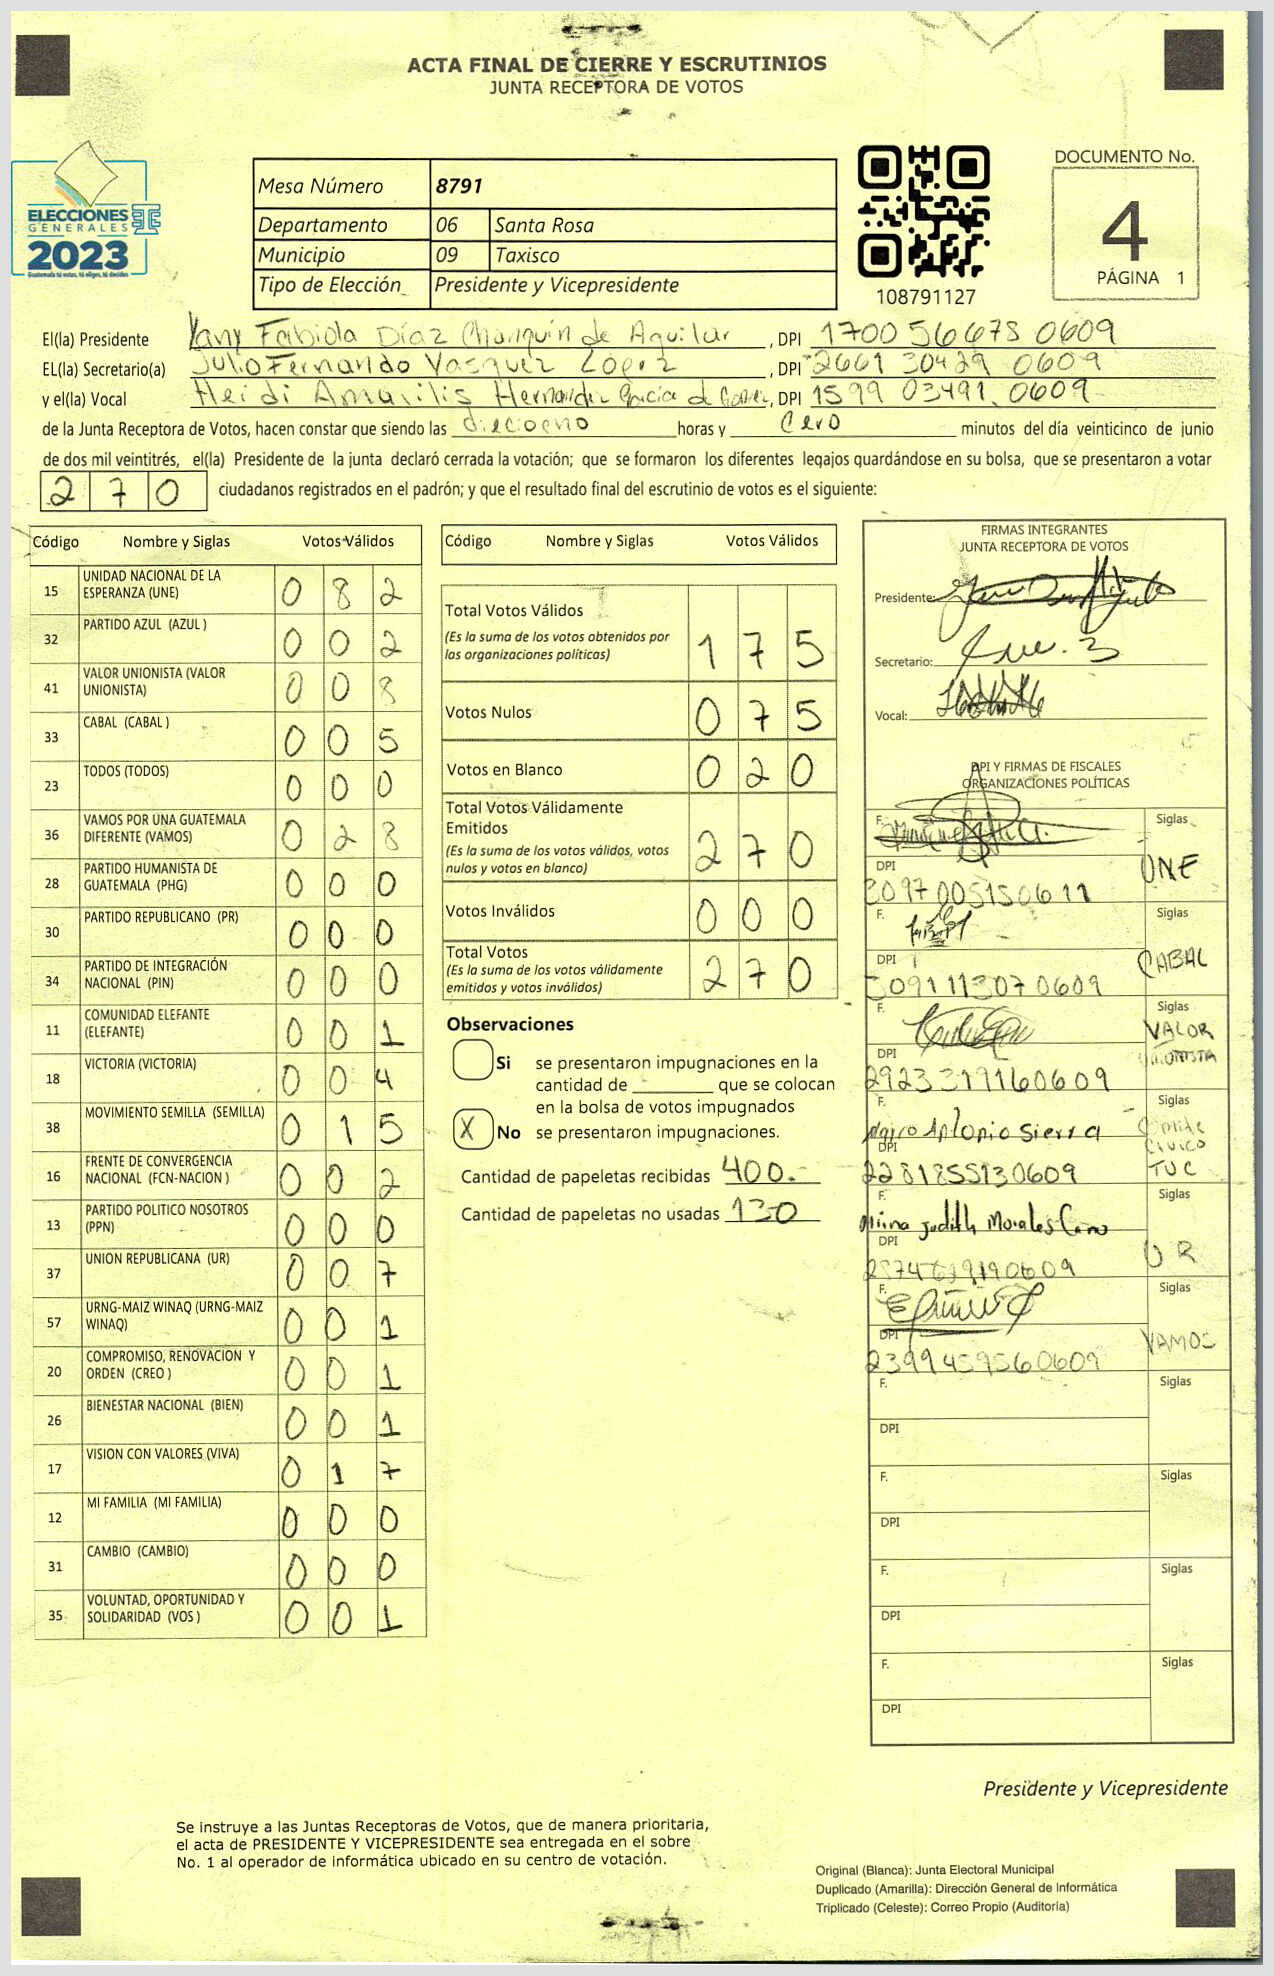 ACTA FINAL DE CIERRE Y ESCRUTINIOS
JUNTA RECEPTORA DE VOTOS
ELECCIONES
GENERALES
2023
Guatemala tú votas, tú eliges, tú decides
Mesa Número 8791
Departamento 06 Santa Rosa
Municipio 09 Taxisco
Tipo de Elección Presidente y Vicepresidente
108791127
DOCUMENTO No.
4
PÁGINA 1
El(la) Presidente Yany Fabiola Díaz Chanquín de Aguilar, DPI 1700 56675 0609
EL(la) Secretario(a) Julio Fernando Vasquez López, DPI 2661 30429 0609
y el(la) Vocal Heidi Amarilis Hernandez García de, DPI 1599 03491 0609
de la Junta Receptora de Votos, hacen constar que siendo las dieciocho horas y Cero minutos del día veinticinco de junio
de dos mil veintitrés, el(la) Presidente de la junta declaró cerrada la votación; que se formaron los diferentes legajos guardándose en su bolsa, que se presentaron a votar
270 ciudadanos registrados en el padrón; y que el resultado final del escrutinio de votos es el siguiente:
Código Nombre y Siglas Votos Válidos
15 UNIDAD NACIONAL DE LA ESPERANZA (UNE) 0 8 2
32 PARTIDO AZUL (AZUL ) 0 0 2
41 VALOR UNIONISTA (VALOR UNIONISTA) 0 0 8
33 CABAL (CABAL ) 0 0 5
23 TODOS (TODOS) 0 0 0
36 VAMOS POR UNA GUATEMALA DIFERENTE (VAMOS) 0 2 8
28 PARTIDO HUMANISTA DE GUATEMALA (PHG) 0 0 0
30 PARTIDO REPUBLICANO (PR) 0 0 0
34 PARTIDO DE INTEGRACIÓN NACIONAL (PIN) 0 0 0
11 COMUNIDAD ELEFANTE (ELEFANTE) 0 0 1
18 VICTORIA (VICTORIA) 0 0 4
38 MOVIMIENTO SEMILLA (SEMILLA) 0 1 5
16 FRENTE DE CONVERGENCIA NACIONAL (FCN-NACION ) 0 0 2
13 PARTIDO POLITICO NOSOTROS (PPN) 0 0 0
37 UNION REPUBLICANA (UR) 0 0 7
57 URNG-MAIZ WINAQ (URNG-MAIZ WINAQ) 0 0 1
20 COMPROMISO, RENOVACION Y ORDEN (CREO ) 0 0 1
26 BIENESTAR NACIONAL (BIEN) 0 0 1
17 VISION CON VALORES (VIVA) 0 1 7
12 MI FAMILIA (MI FAMILIA) 0 0 0
31 CAMBIO (CAMBIO) 0 0 0
35 VOLUNTAD, OPORTUNIDAD Y SOLIDARIDAD (VOS ) 0 0 1
Código Nombre y Siglas Votos Válidos
Total Votos Válidos
(Es la suma de los votos obtenidos por
las organizaciones políticas) 1 7 5
Votos Nulos 0 7 5
Votos en Blanco 0 2 0
Total Votos Válidamente
Emitidos
(Es la suma de los votos válidos, votos
nulos y votos en blanco) 2 7 0
Votos Inválidos 0 0 0
Total Votos
(Es la suma de los votos válidamente
emitidos y votos inválidos) 2 7 0
Observaciones
Si se presentaron impugnaciones en la
cantidad de ________ que se colocan
en la bolsa de votos impugnados
X No se presentaron impugnaciones.
Cantidad de papeletas recibidas 400.
Cantidad de papeletas no usadas 130
FIRMAS INTEGRANTES
JUNTA RECEPTORA DE VOTOS
Presidente:
Secretario:
Vocal:
DPI Y FIRMAS DE FISCALES
ORGANIZACIONES POLÍTICAS
F. Siglas
UNE
DPI
3097005150611
F. Siglas
CABAL
DPI
3091113070609
F. Siglas
VALOR
UNIONISTA
DPI
2923319160609
F. Siglas
Antonio Sierra
Comite
Civico
TUC
DPI
2281855130609
F. Siglas
Judith Morales Cano
UR
DPI
F. Siglas
VAMOS
DPI
2399459560609
F. Siglas
DPI
F. Siglas
DPI
F. Siglas
DPI
F. Siglas
DPI
Presidente y Vicepresidente
Se instruye a las Juntas Receptoras de Votos, que de manera prioritaria,
el acta de PRESIDENTE Y VICEPRESIDENTE sea entregada en el sobre
No. 1 al operador de informática ubicado en su centro de votación.
Original (Blanca): Junta Electoral Municipal
Duplicado (Amarilla): Dirección General de Informática
Triplicado (Celeste): Correo Propio (Auditoría)